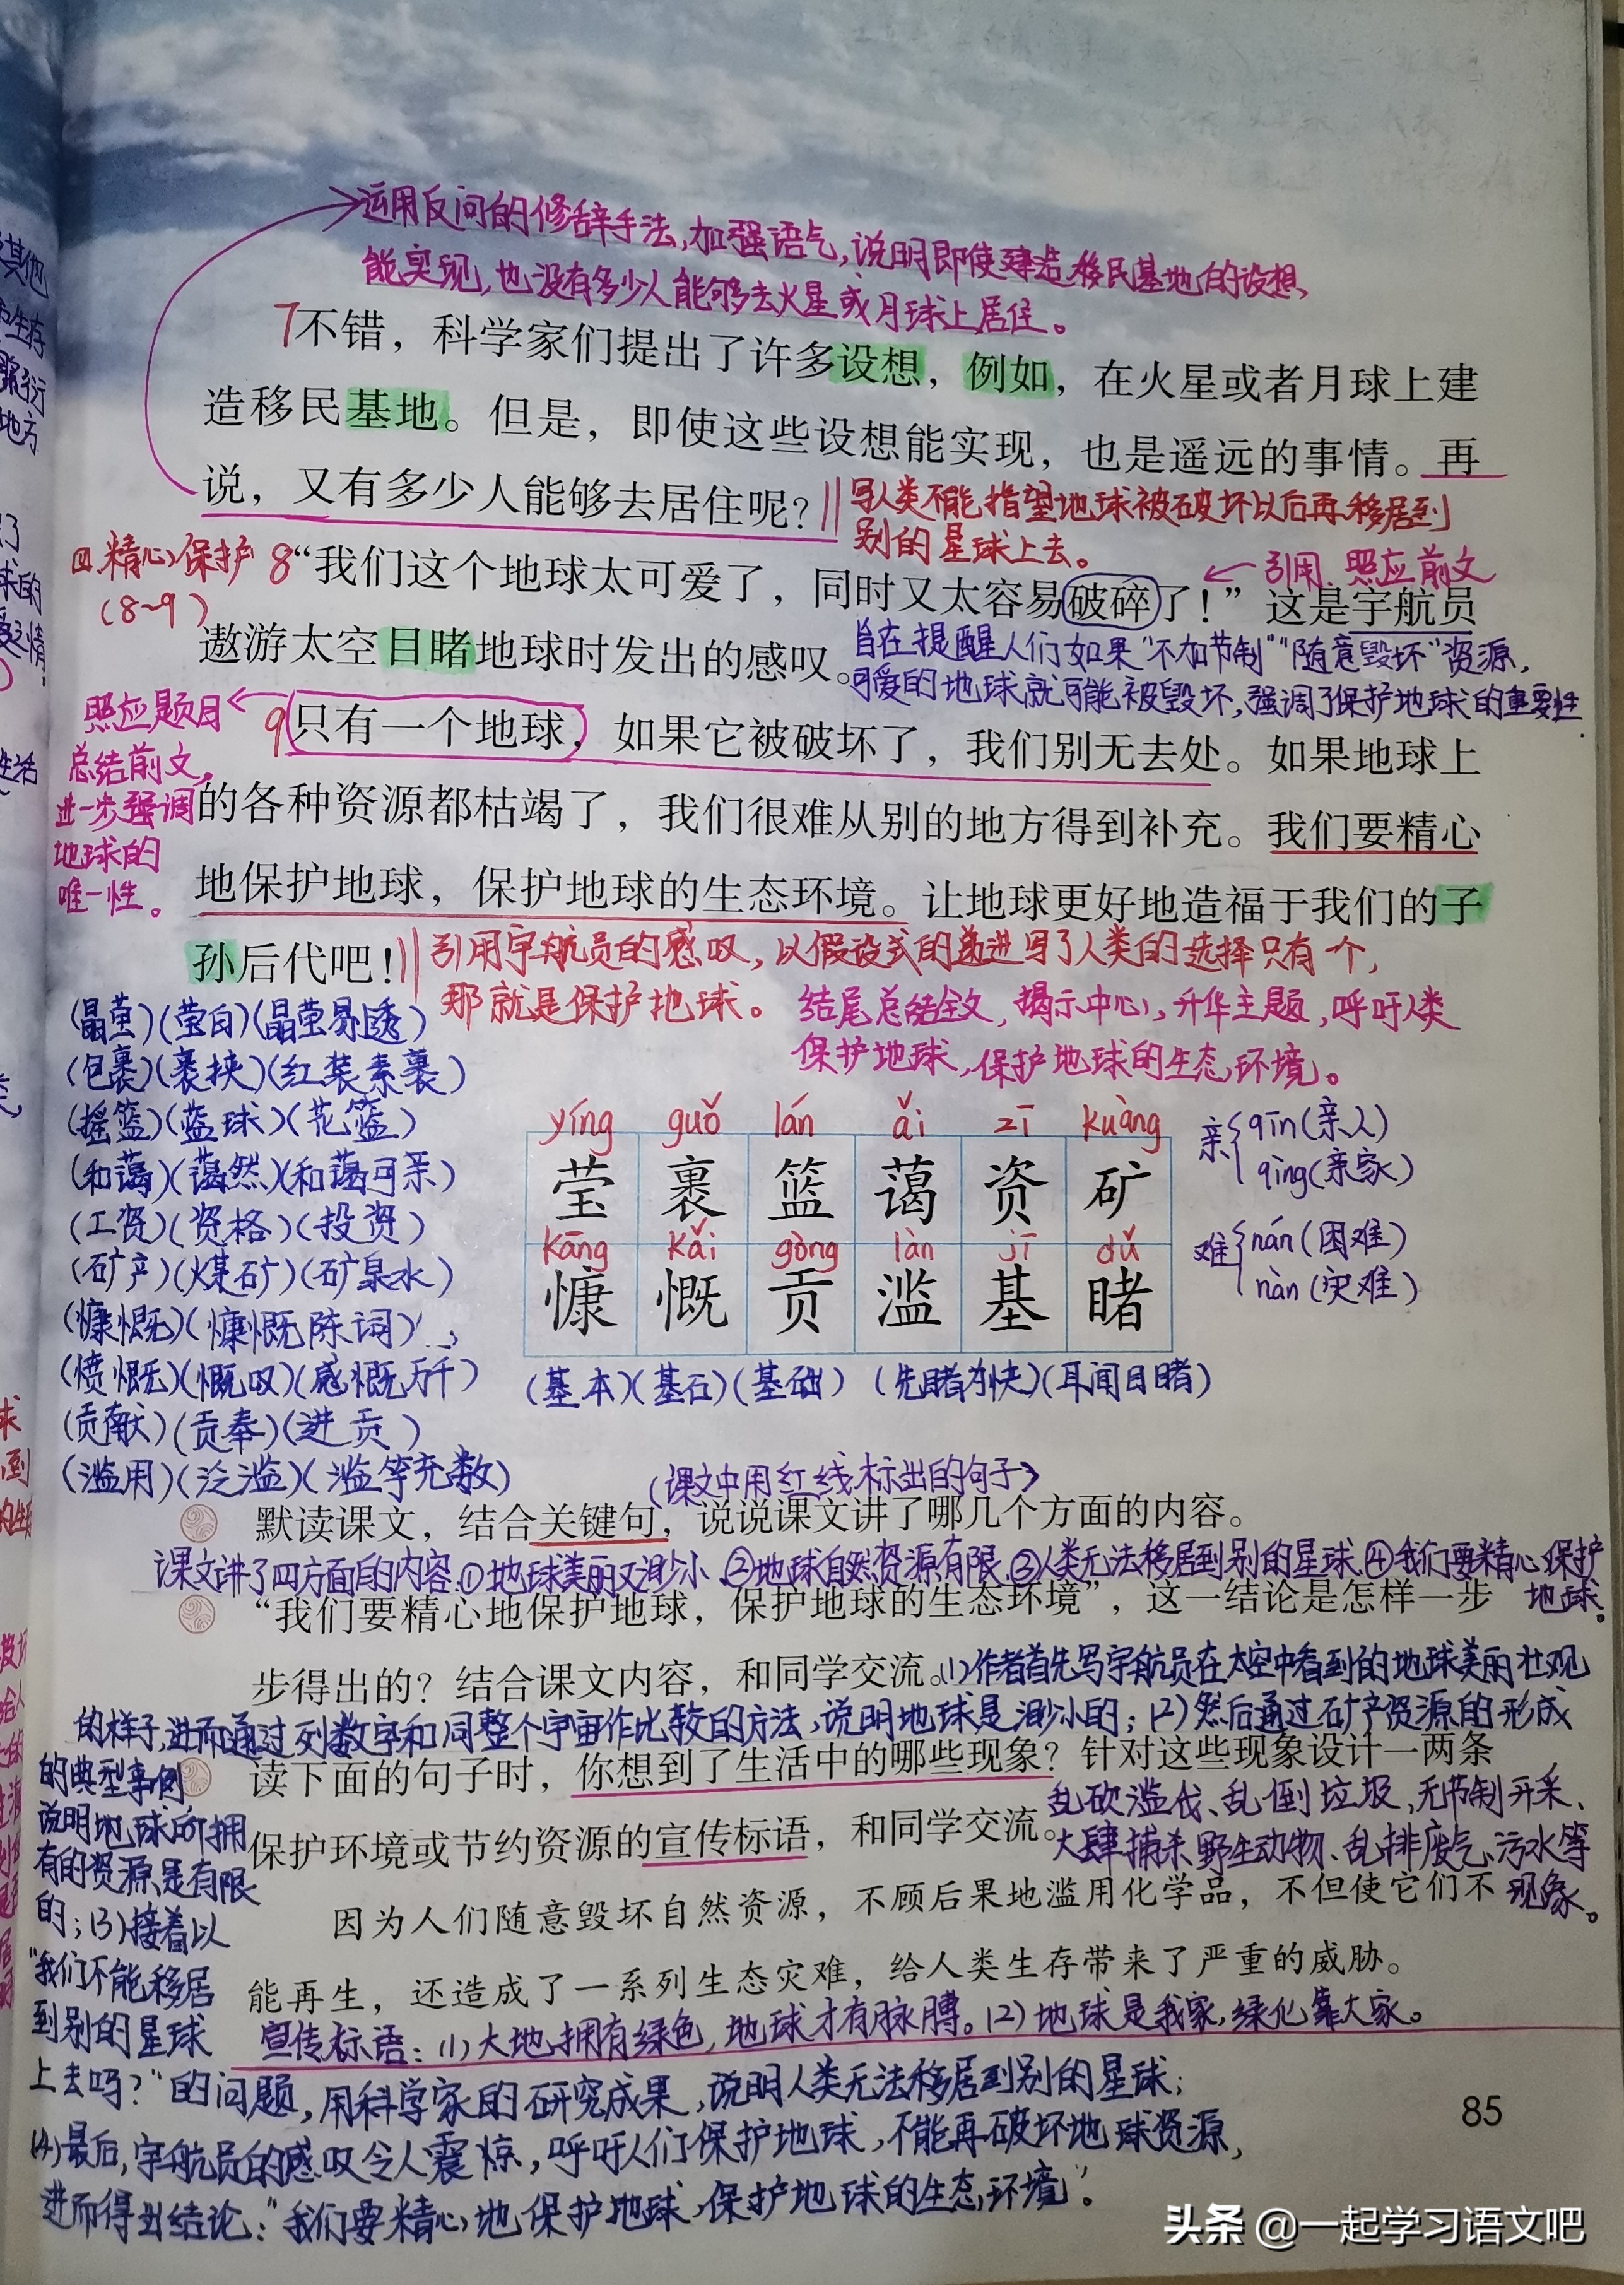 运用反问的修辞手法,加强语气,说明即使建造移民基地的设想
能实现,也没有多少人能够去火星或月球上居住。
7不错，科学家们提出了许多设想，例如，在火星或者月球上建
造移民基地。但是，即使这些设想能实现，也是遥远的事情。再
说，又有多少人能够去居住呢？
写人类不能指望地球被破坏以后再移居到
别的星球上去。
四.精心保护
(8~9)
引用,照应前文
8“我们这个地球太可爱了，同时又太容易破碎了！”这是宇航员
遨游太空目睹地球时发出的感叹。
旨在提醒人们如果“不加节制”“随意毁坏”资源,
可爱的地球就可能被毁坏,强调了保护地球的重要性.
照应题目
总结前文,
进一步强调
地球的
唯一性。
9只有一个地球，如果它被破坏了，我们别无去处。如果地球上
的各种资源都枯竭了，我们很难从别的地方得到补充。我们要精心
地保护地球，保护地球的生态环境。让地球更好地造福于我们的子
孙后代吧！
引用宇航员的感叹,以假设式的递进写了人类的选择只有一个,
那就是保护地球。
结尾总结全文,揭示中心,升华主题,呼吁人类
保护地球,保护地球的生态环境。
(晶莹)(莹白)(晶莹易透)
(包裹)(裹挟)(红装素裹)
(摇篮)(蓝球)(花篮)
(和蔼)(蔼然)(和蔼可亲)
(工资)(资格)(投资)
(矿产)(煤矿)(矿泉水)
(慷慨)(慷慨陈词)
(愤慨)(慨叹)(感慨万千)
(贡献)(贡奉)(进贡)
(滥用)(泛滥)(滥竽充数)
yíng guǒ lán ǎi zī kuàng
莹 裹 篮 蔼 资 矿
kāng kǎi gòng làn jī dǔ
慷 慨 贡 滥 基 睹
亲 qīn(亲人)
qìng(亲家)
难 nán(困难)
nàn(灾难)
(基本)(基石)(基础) (先睹为快)(耳闻目睹)
(课文中用红线标出的句子)
默读课文，结合关键句，说说课文讲了哪几个方面的内容。
课文讲了四方面的内容.①地球美丽又渺小、②地球自然资源有限、③人类无法移居到别的星球、④我们要精心保护
地球。
“我们要精心地保护地球，保护地球的生态环境”，这一结论是怎样一步
步得出的？结合课文内容，和同学交流。
(1)作者首先写宇航员在太空中看到的地球美丽壮观
的样子,进而通过列数字和同整个宇宙作比较的方法,说明地球是渺小的;(2)然后通过矿产资源的形成
的典型事例
说明地球所拥
有的资源是有限
的;(3)接着以
“我们不能移居
到别的星球
上去吗?”的问题,用科学家的研究成果,说明人类无法移居到别的星球;
(4)最后,宇航员的感叹令人震惊,呼吁人们保护地球,不能再破坏地球资源,
进而得出结论:“我们要精心地保护地球,保护地球的生态环境”.
读下面的句子时，你想到了生活中的哪些现象？针对这些现象设计一两条
保护环境或节约资源的宣传标语，和同学交流。
乱砍滥伐、乱倒垃圾、无节制开采、
大肆捕杀野生动物、乱排废气、污水等
现象。
因为人们随意毁坏自然资源，不顾后果地滥用化学品，不但使它们不
能再生，还造成了一系列生态灾难，给人类生存带来了严重的威胁。
宣传标语：(1)大地拥有绿色,地球才有脉膊。(2)地球是我家,绿化靠大家。
85
头条 @一起学习语文吧